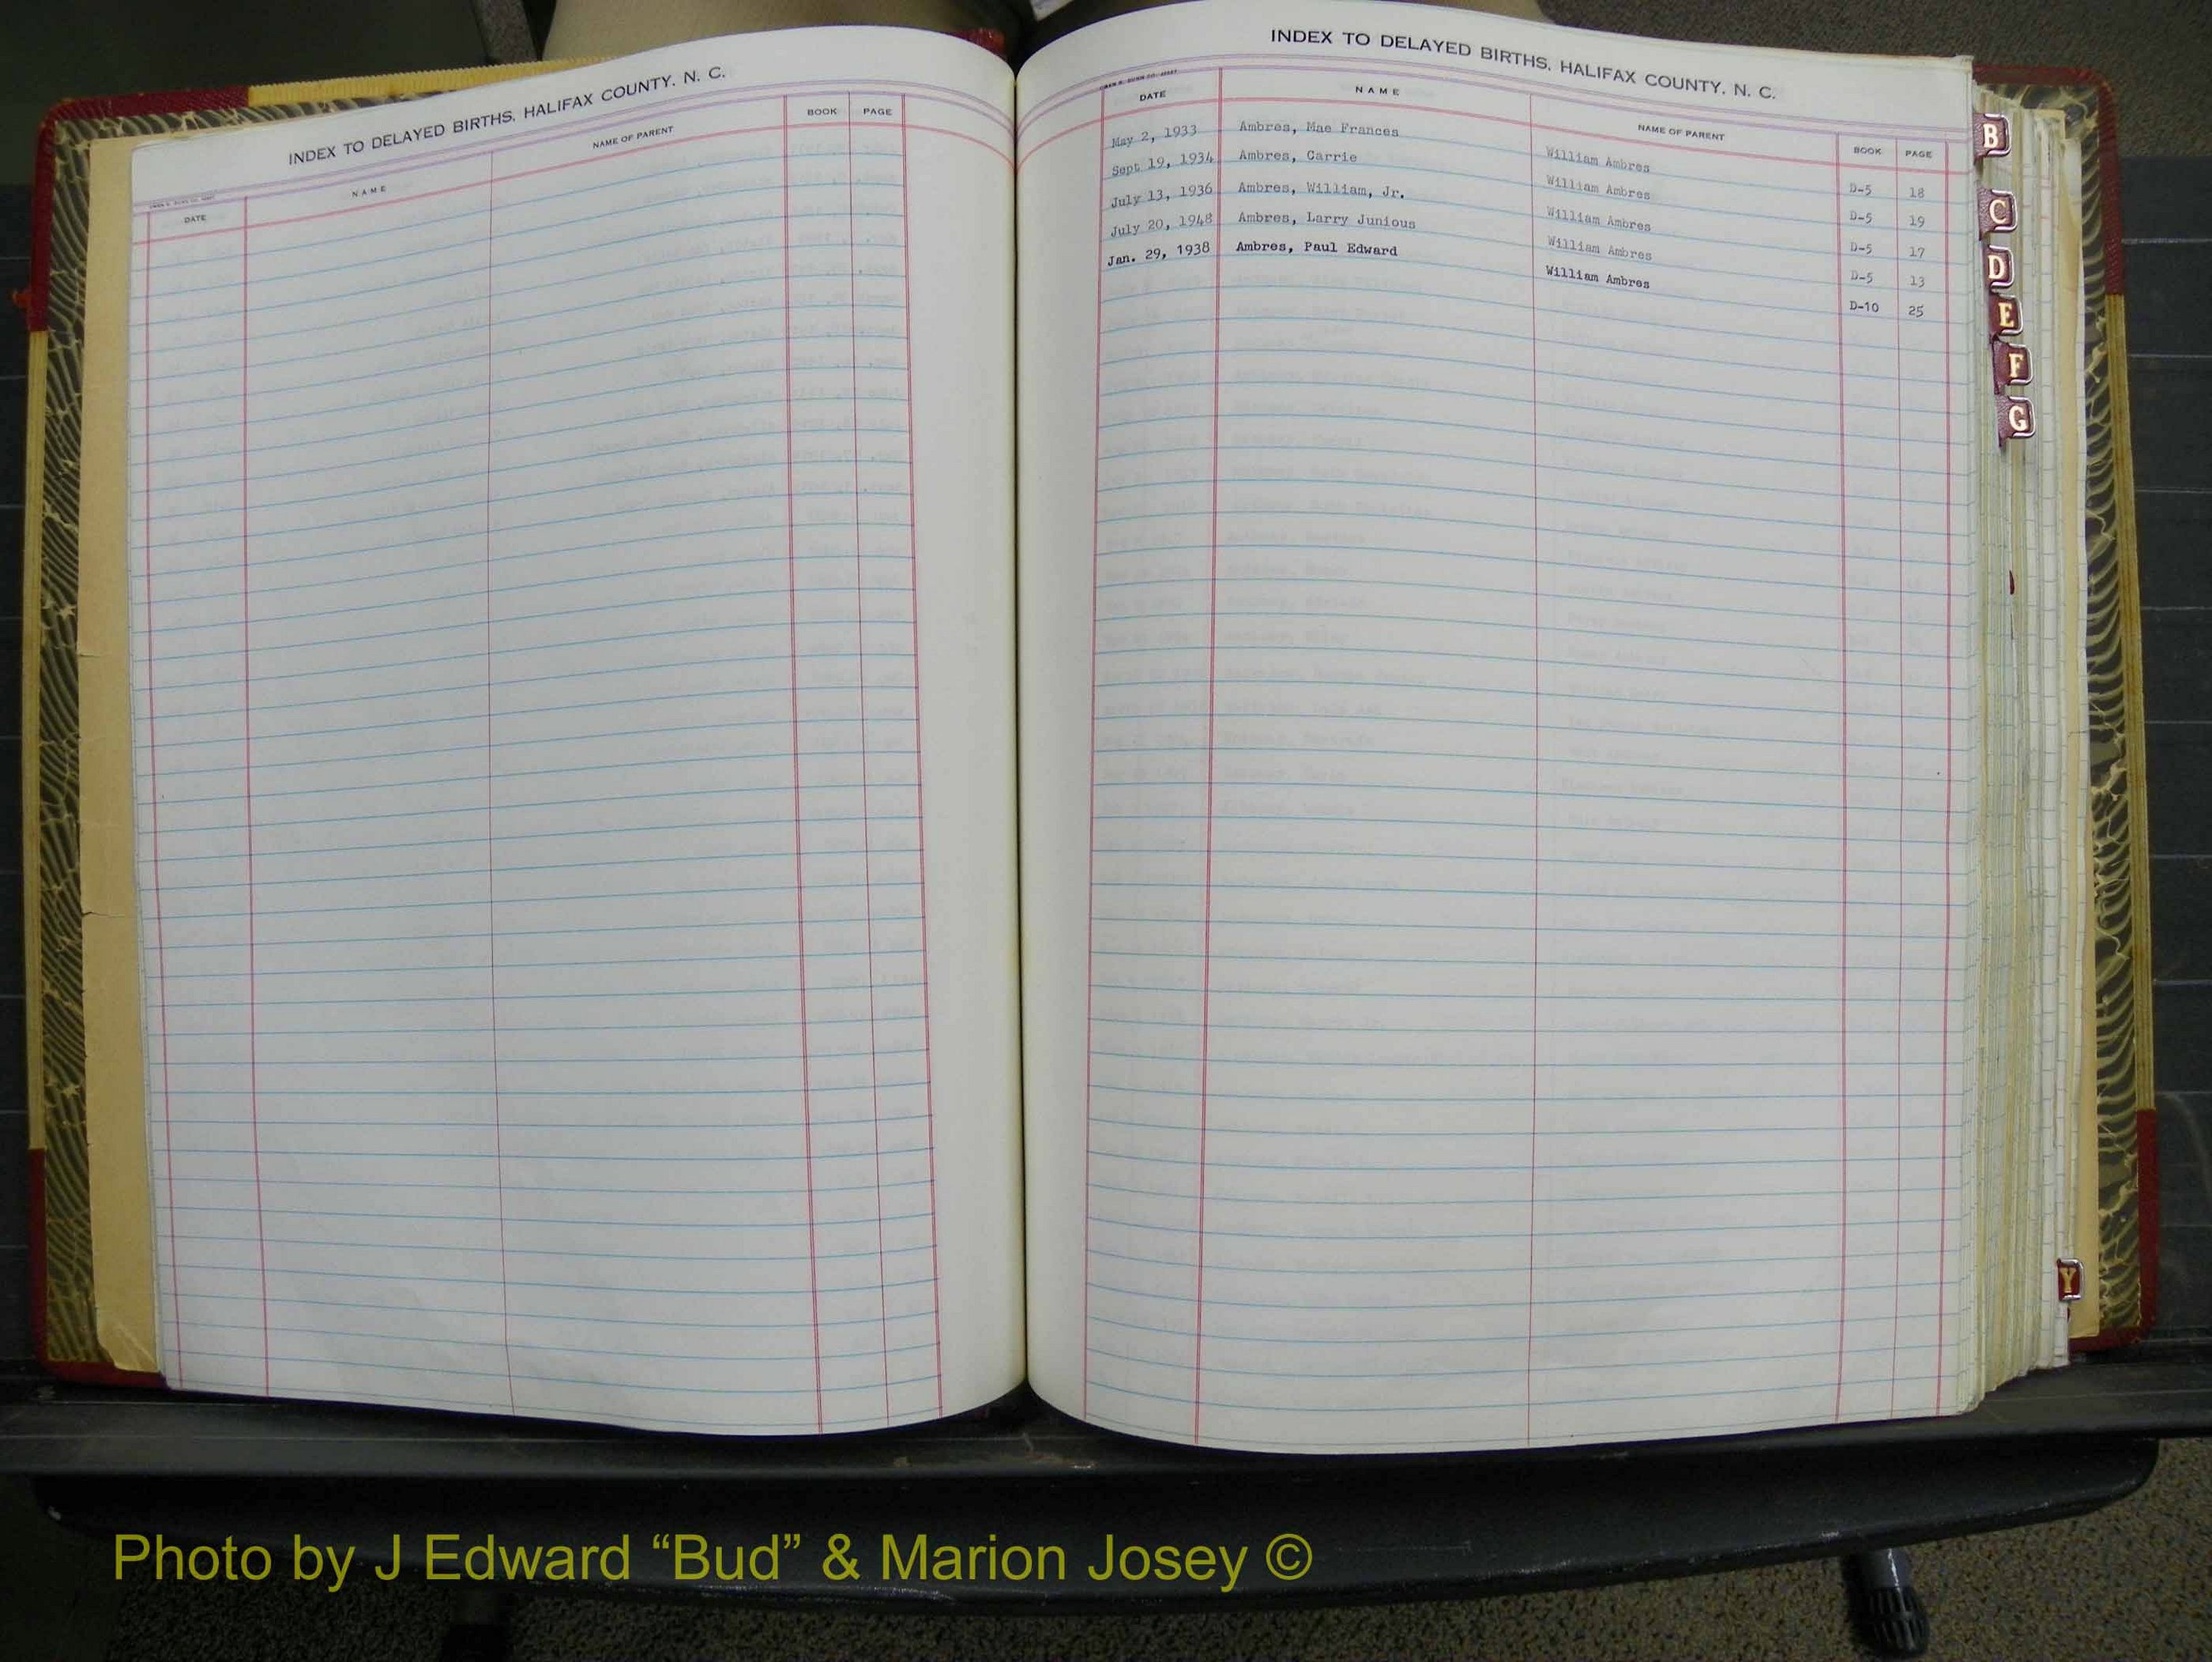 INDEX TO DELAYED BIRTHS, HALIFAX COUNTY, N. C.
DATE NAME NAME OF PARENT BOOK PAGE
INDEX TO DELAYED BIRTHS, HALIFAX COUNTY, N. C.
DATE NAME NAME OF PARENT BOOK PAGE
May 2, 1933 Ambres, Mae Frances William Ambres D-5 18
Sept 19, 1934 Ambres, Carrie William Ambres D-5 19
July 13, 1936 Ambres, William, Jr. William Ambres D-5 17
July 20, 1948 Ambres, Larry Junious William Ambres D-5 13
Jan. 29, 1938 Ambres, Paul Edward William Ambres D-10 25
B
C
D
E
F
G
Y
Photo by J Edward “Bud” & Marion Josey ©